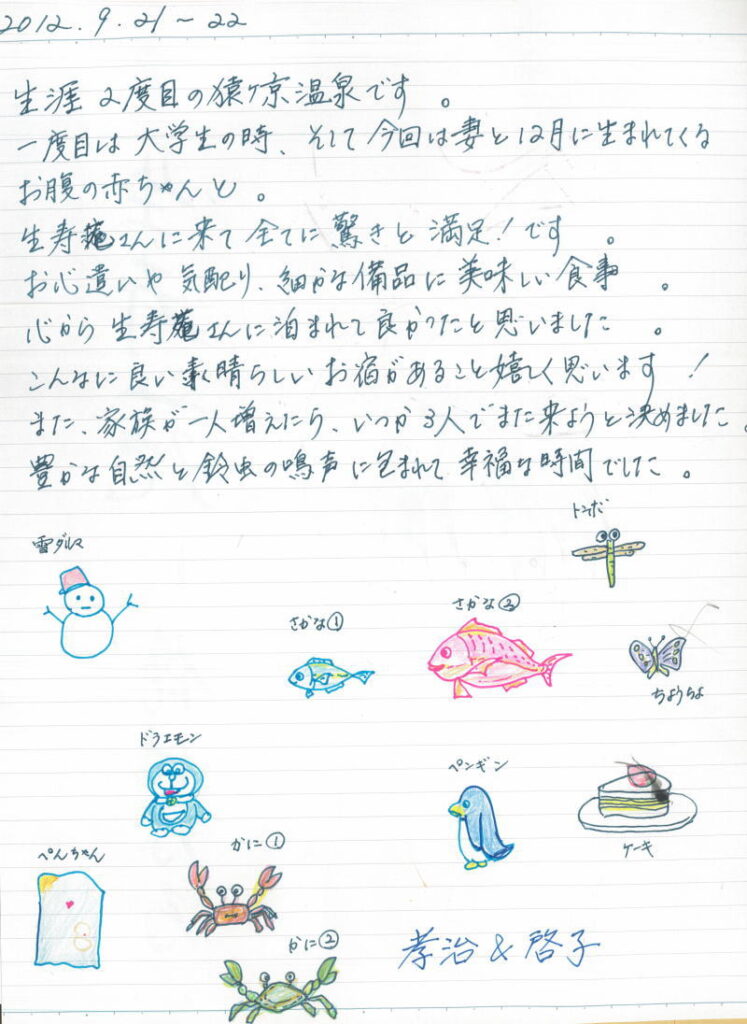 2012.9.21～22
生涯2度目の猿ヶ京温泉です。
一度目は大学生の時、そして今回は妻と12月に生まれてくる
お腹の赤ちゃんと。
生寿庵さんに来て全てに驚きと満足！です。
お心遣いや気配り、細かな備品に美味しい食事。
心から生寿庵さんに泊まれて良かったと思いました。
こんなに良い素晴らしいお宿があること嬉しく思います！
また、家族が一人増えたら、いつか3人でまた来ようと決めました。
豊かな自然と鈴虫の鳴声に包まれて幸福な時間でした。
トンボ
雪ダルマ
さかな①
さかな②
ちょうちょ
ドラエモン
ペンギン
ケーキ
かに①
ぺんちゃん
かに②
孝治&啓子